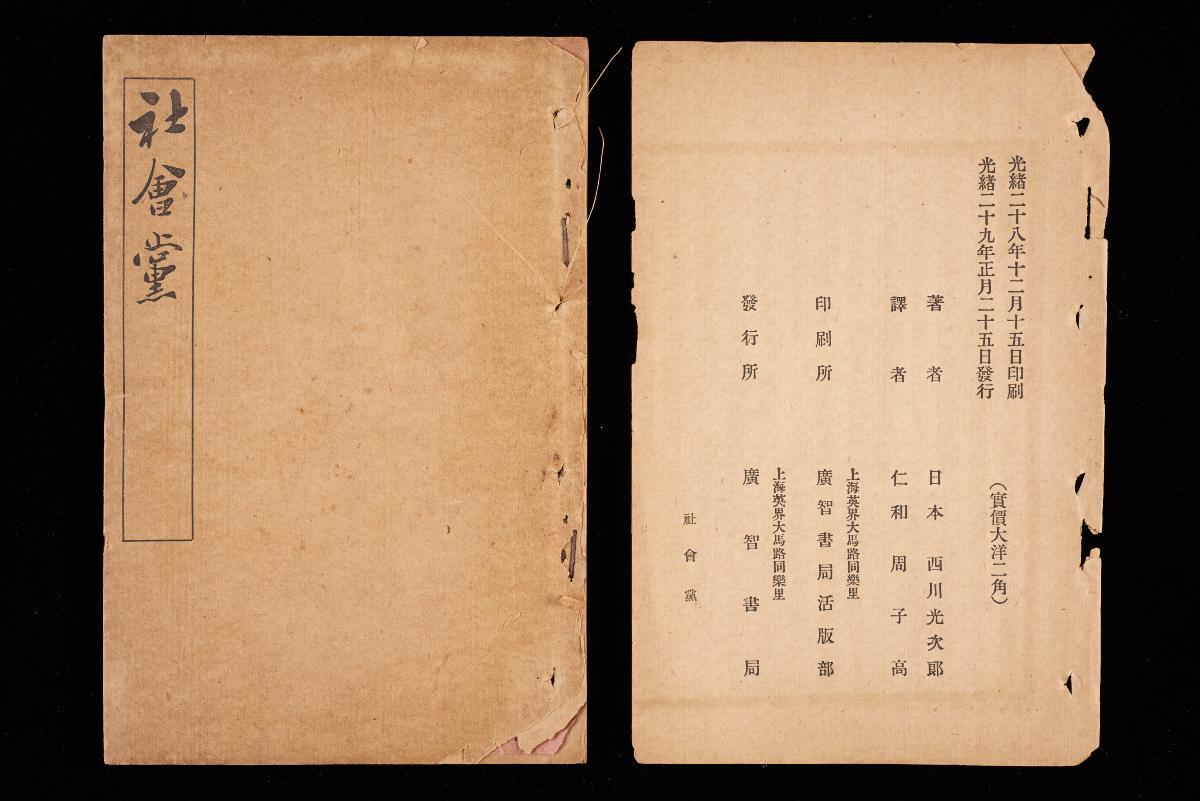 社會黨
光緒二十八年十二月十五日印刷
光緒二十九年正月二十五日發行
（實價大洋二角）
著者 日本 西川光次郞
譯者 仁和周子高
上海英界大馬路同樂里
印刷所 廣智書局活版部
上海英界大馬路同樂里
發行所 廣智書局
社會黨